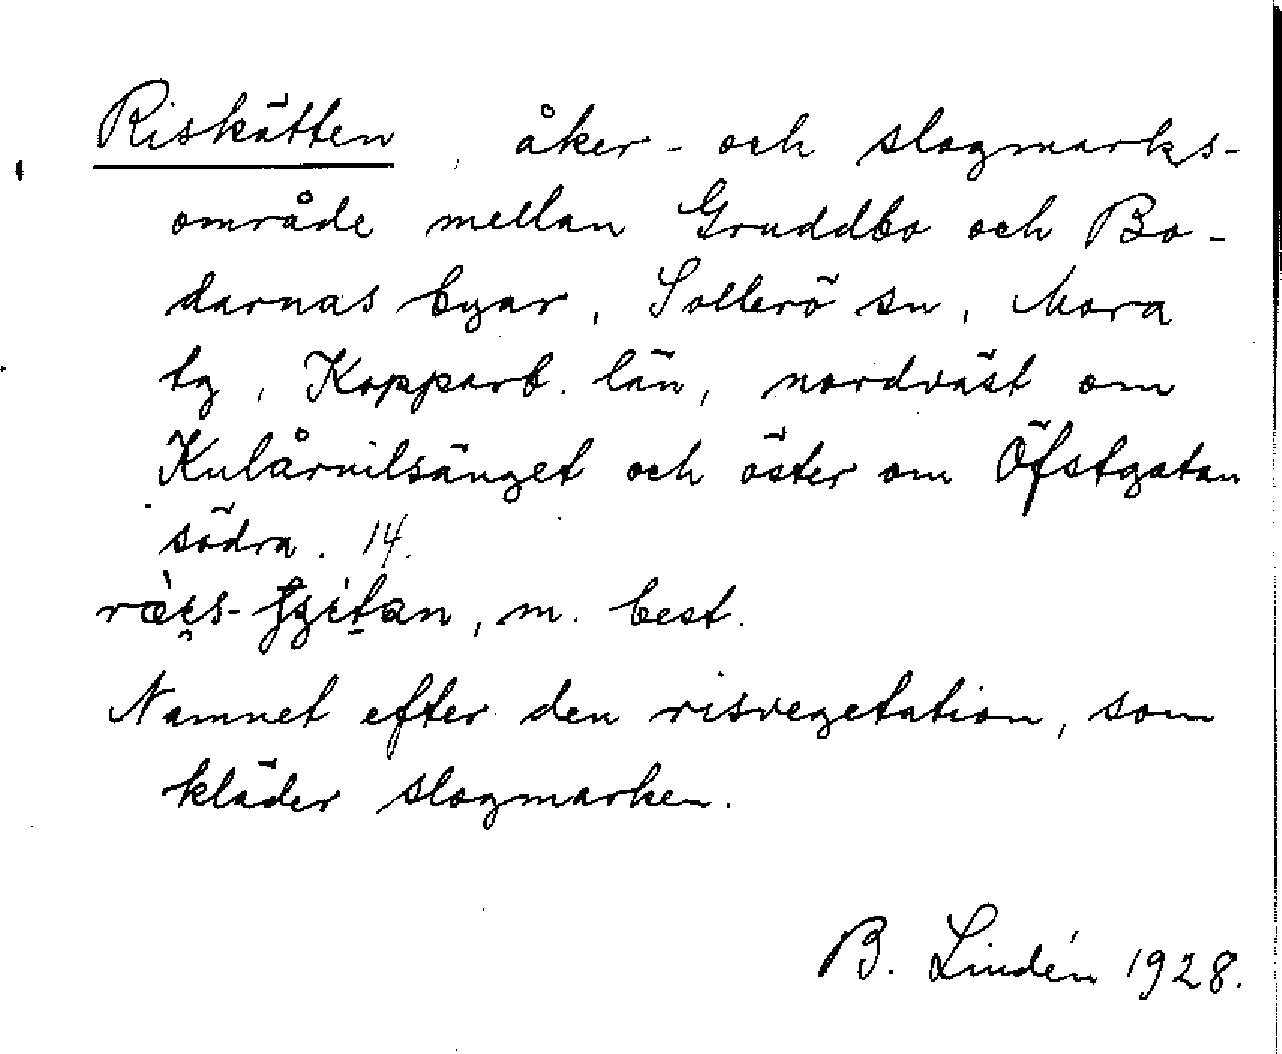 Riskätten, åker- och slogmarks-
område mellan Gruddbo och Bo-
darnas byar, Sollerö sn, Mora
tg, Kopparb. län, nordväst om
Kulårvilsänget och öster om Öfstgatan
södra. 14.
m. best.
Namnet efter den risvegetation, som
kläder slogmarken.
B. Lindén 1928.